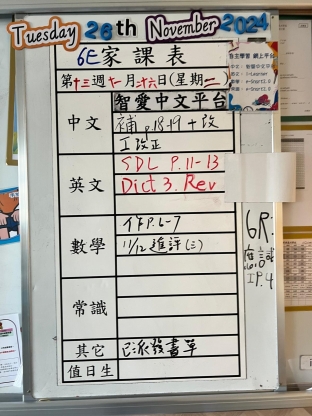 Tuesday 26th November 2024
6E家課表
第十三週十一月二十六日(星期二)
自主學習 網上平台
智愛中文平台
中文
補 p.18-19 + 改
工改正
英文
SDL P.11-13
Dict 3. Rev
數學
作P.6-7
11/12進評(三)
常識
其它
已派發書單
值日生
6R:
IP.4